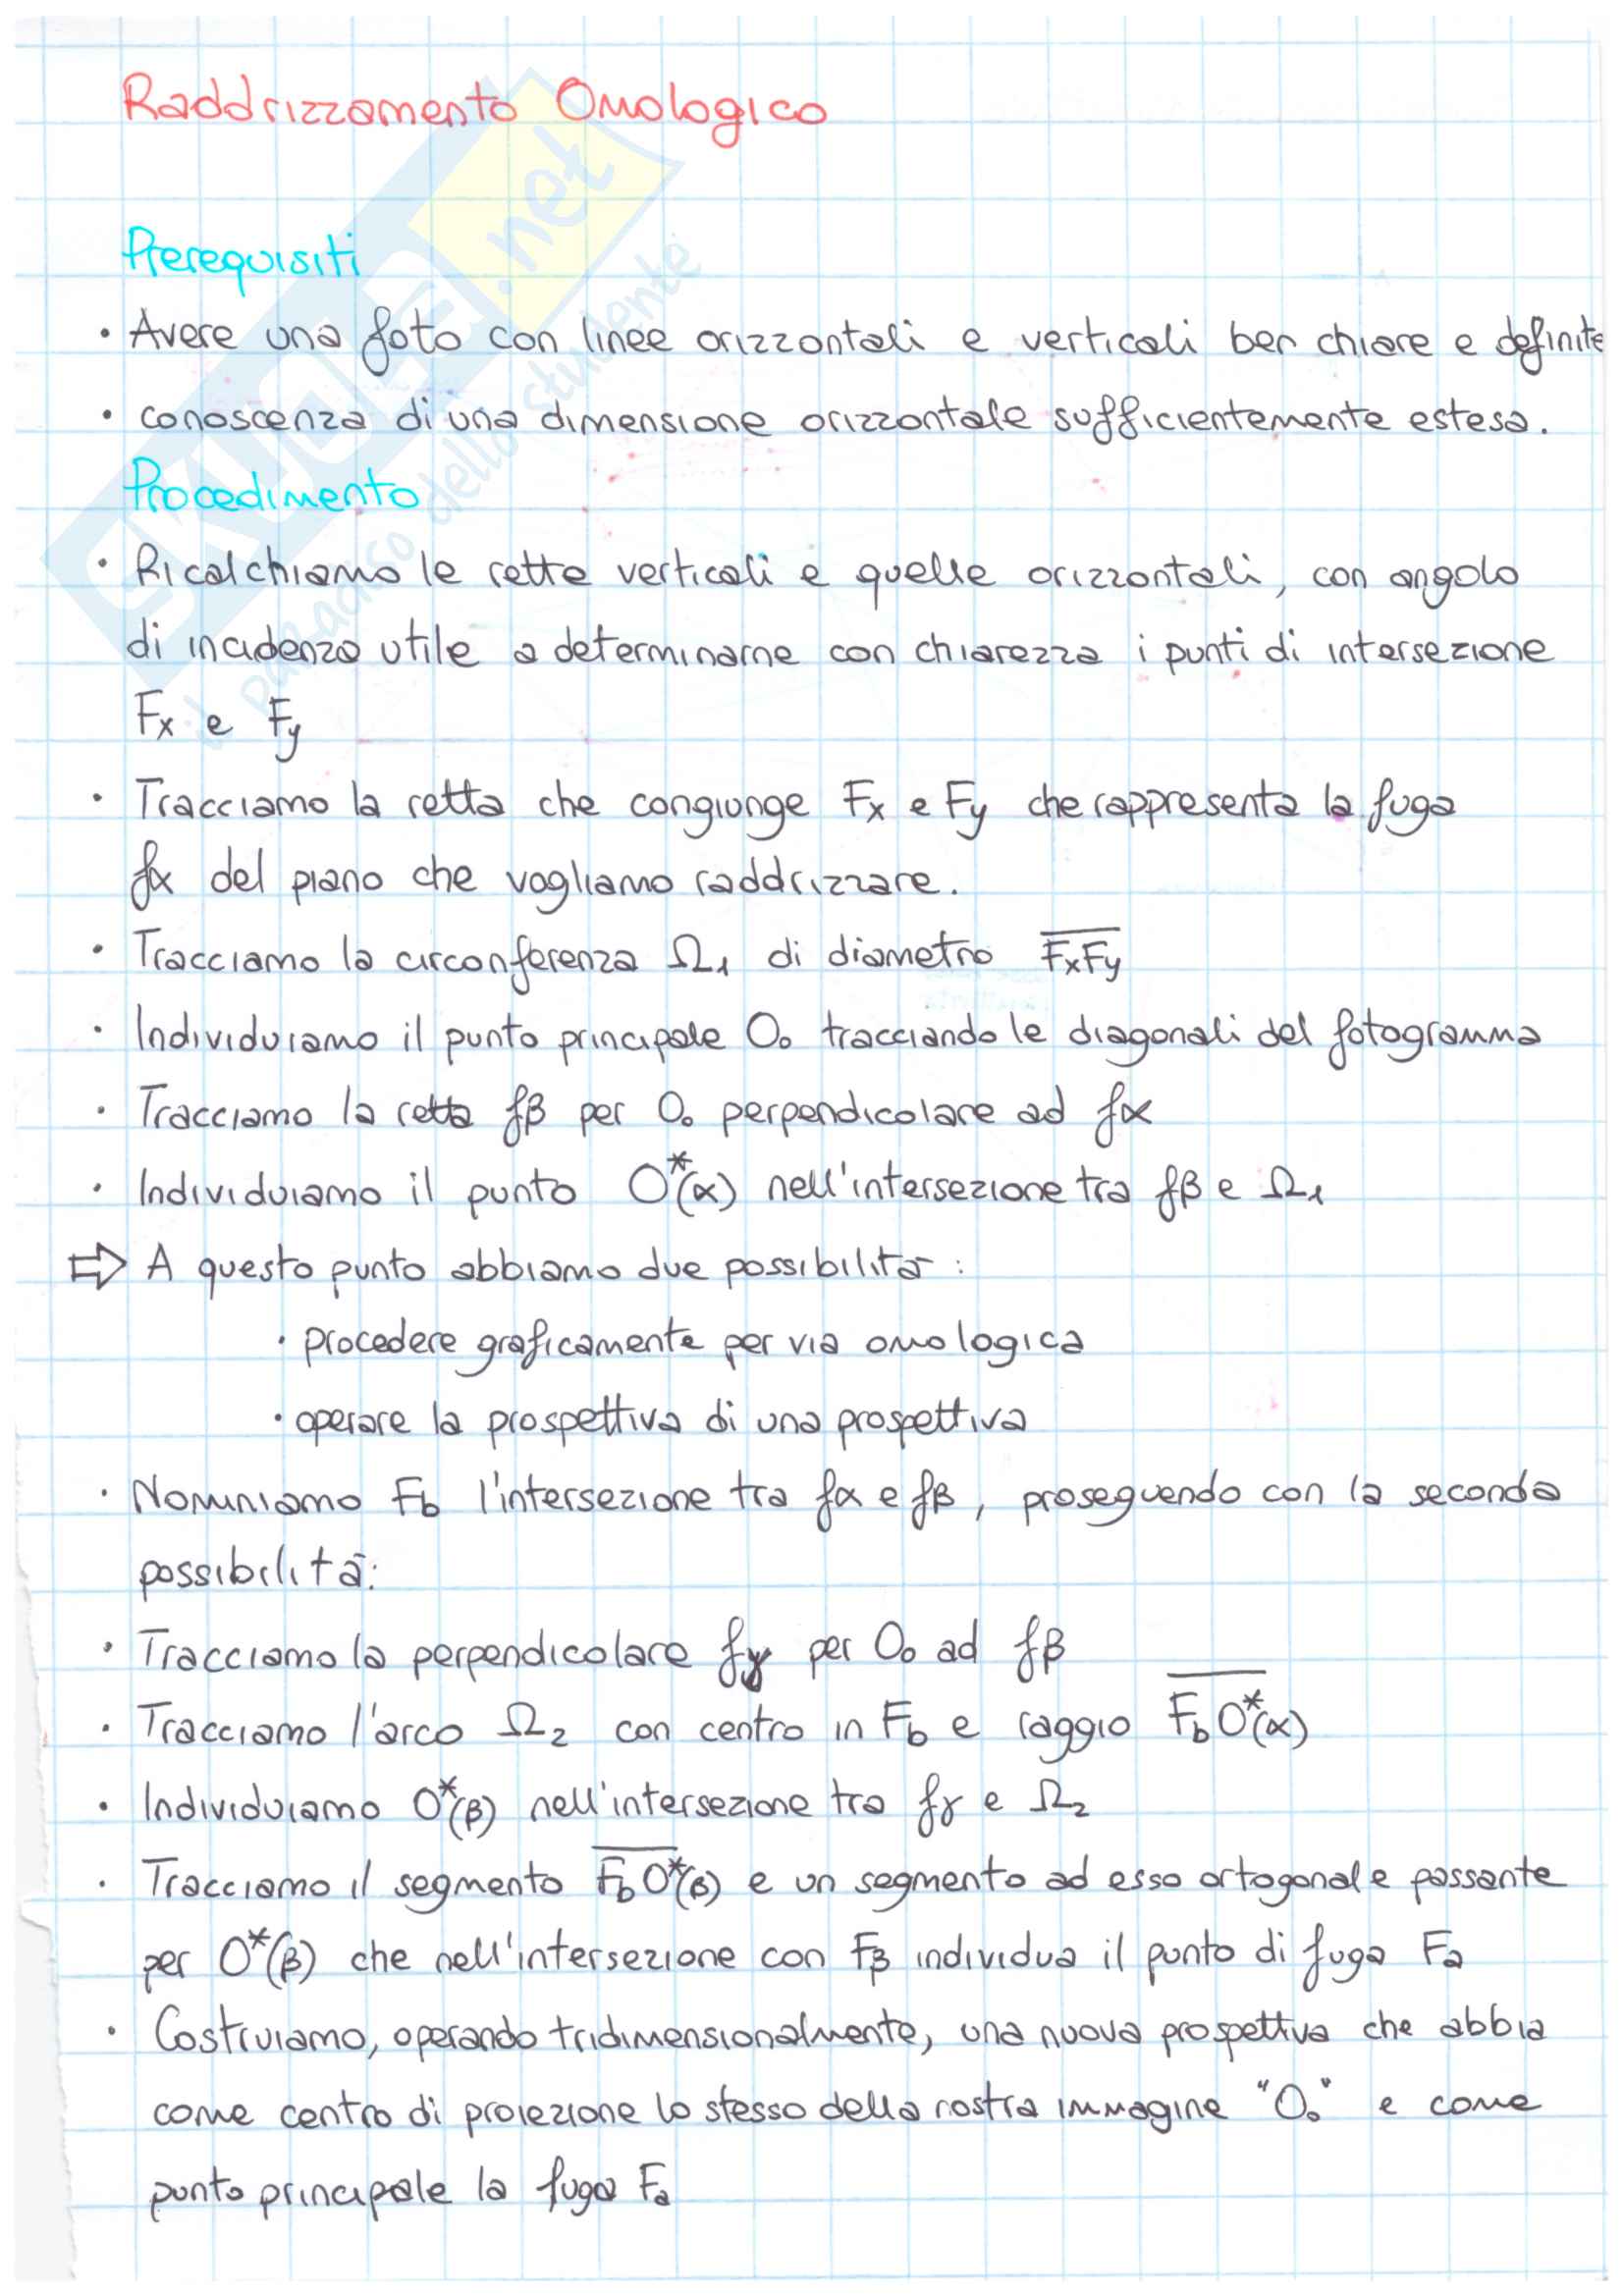 Raddrizzamento Omologico
Prerequisiti
• Avere una foto con linee orizzontali e verticali ben chiare e definite
• conoscenza di una dimensione orizzontale sufficientemente estesa.
Procedimento
• Ricalchiamo le rette verticali e quelle orizzontali, con angolo
di incidenza utile a determinarne con chiarezza i punti di intersezione
Fx e Fy
• Tracciamo la retta che congiunge Fx e Fy che rappresenta la fuga
fα del piano che vogliamo raddrizzare.
• Tracciamo la circonferenza Ω₁ di diametro F̅x̅F̅y̅
• Individuiamo il punto principale O₀ tracciando le diagonali del fotogramma
• Tracciamo la retta fβ per O₀ perpendicolare ad fα
• Individuiamo il punto O*(α) nell'intersezione tra fβ e Ω₁
⇨ A questo punto abbiamo due possibilità:
• procedere graficamente per via omologica
• operare la prospettiva di una prospettiva
• Nominiamo Fb l'intersezione tra fα e fβ, proseguendo con la seconda
possibilità:
• Tracciamo la perpendicolare fγ per O₀ ad fβ
• Tracciamo l'arco Ω₂ con centro in Fb e raggio F̅b̅O̅*̅(α)
• Individuiamo O*(β) nell'intersezione tra fγ e Ω₂
• Tracciamo il segmento F̅b̅O̅*̅(β) e un segmento ad esso ortogonale passante
per O*(β) che nell'intersezione con Fβ individua il punto di fuga Fa
• Costruiamo, operando tridimensionalmente, una nuova prospettiva che abbia
come centro di proiezione lo stesso della nostra immagine "O₀" e come
punto principale la fuga Fa
SKUOLA.net
il paradiso dello studente